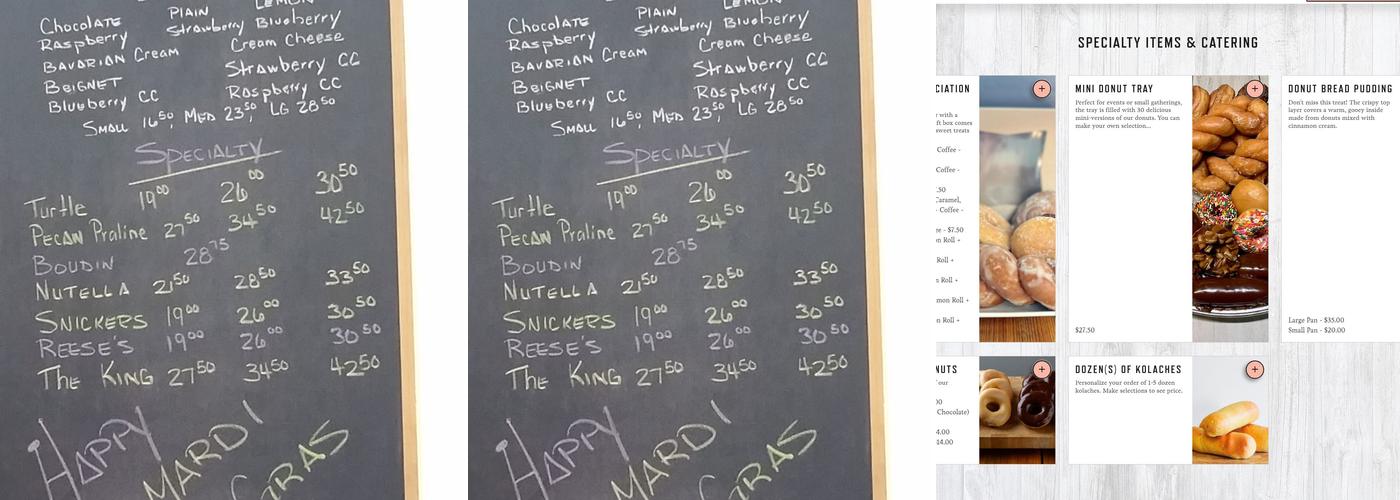 LEMON
Chocolate PLAIN Blueberry
Raspberry Strawberry Cream Cheese
BAVARIAN Cream Strawberry CC
BEIGNET Raspberry CC
Blueberry CC
Small 16⁵⁰, Med 23⁵⁰, LG 28⁵⁰
Specialty
Turtle 19⁰⁰ 26⁰⁰ 30⁵⁰
Pecan Praline 27⁵⁰ 34⁵⁰ 42⁵⁰
Boudin 28⁷⁵
Nutella 21⁵⁰ 28⁵⁰ 33⁵⁰
Snickers 19⁰⁰ 26⁰⁰ 30⁵⁰
Reese's 19⁰⁰ 26⁰⁰ 30⁵⁰
The King 27⁵⁰ 34⁵⁰ 42⁵⁰
HAPPY
MARDI
GRAS
LEMON
Chocolate PLAIN Blueberry
Raspberry Strawberry Cream Cheese
BAVARIAN Cream Strawberry CC
BEIGNET Raspberry CC
Blueberry CC
Small 16⁵⁰, Med 23⁵⁰, LG 28⁵⁰
Specialty
Turtle 19⁰⁰ 26⁰⁰ 30⁵⁰
Pecan Praline 27⁵⁰ 34⁵⁰ 42⁵⁰
Boudin 28⁷⁵
Nutella 21⁵⁰ 28⁵⁰ 33⁵⁰
Snickers 19⁰⁰ 26⁰⁰ 30⁵⁰
Reese's 19⁰⁰ 26⁰⁰ 30⁵⁰
The King 27⁵⁰ 34⁵⁰ 42⁵⁰
HAPPY
MARDI
GRAS
SPECIALTY ITEMS & CATERING
CIATION
with a
ft box comes
sweet treats
Coffee -
Coffee -
.50
Caramel,
- Coffee -
ee - $7.50
on Roll +
Roll +
mon Roll +
on Roll +
MINI DONUT TRAY
Perfect for events or small gatherings,
the tray is filled with 30 delicious
mini-versions of our donuts. You can
make your own selection...
$27.50
DONUT BREAD PUDDING
Don't miss this treat! The crispy top
layer covers a warm, gooey inside
made from donuts mixed with
cinnamon cream.
Large Pan - $35.00
Small Pan - $20.00
NUTS
our
00
Chocolate)
4.00
14.00
DOZEN(S) OF KOLACHES
Personalize your order of 1-5 dozen
kolaches. Make selections to see price.